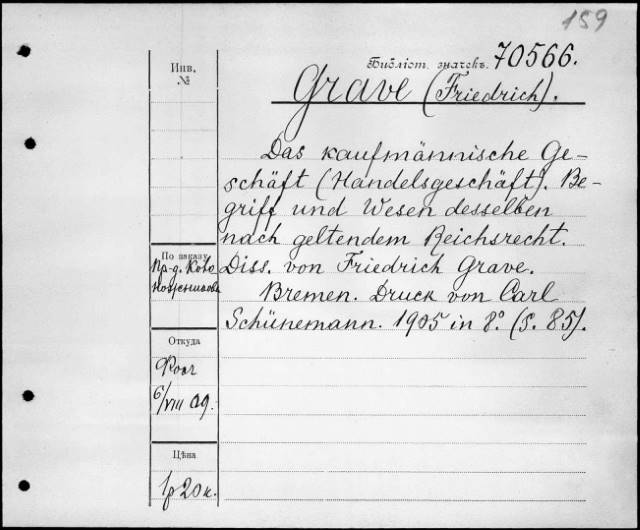 159
Библіот. значекъ. 70566.
Инв.
№
Grave (Friedrich).
Das kaufmännische Ge-
schäft (Handelsgeschäft). Be-
griff und Wesen desselben
nach geltendem Reichsrecht.
Diss. von Friedrich Grave.
Bremen. Druck von Carl
Schünemann. 1905 in 8°. (S. 85).
По заказу
Пр-д.
Откуда
6/VIII 09.
Цѣна
1р 20 к.